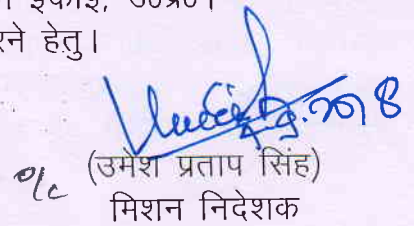 इकाई, उ०प्र०।
रने हेतु।
2018
o/c (उमेश प्रताप सिंह)
मिशन निदेशक